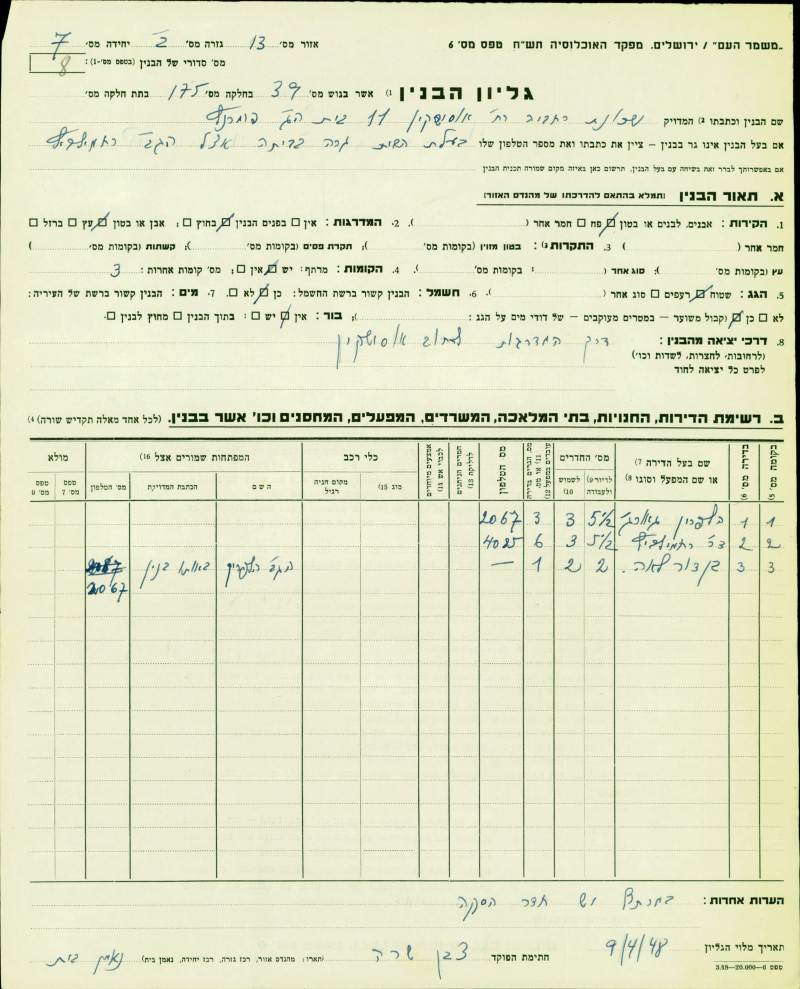 „משמר העם" / ירושלים. מפקד האוכלוסיה תש"ח טפס מס' 6 אזור מס' 13 גזרה מס' 2 יחידה מס' 7
מס' סדורי של הבנין (בטפס מס' 1-): 8
גליון הבנין (1 אשר בגוש מס' 39 בחלקה מס' 175 בתת חלקה מס'
שם הבנין וכתבתו (2 המדויק שכונת רחביה רח' אוסישקין 11 בית הגב'
אם בעל הבנין אינו גר בבנין – ציין את כתבתו ואת מספר הטלפון שלו בעלת הבית גרה בביתה אצל הגב'
אם באפשרותך לברר זאת בשיחה עם בעל הבנין, תרשום כאן באיזה מקום שמורה תכנית הבנין
א. תאור הבנין (תמלא בהתאם להדרכתו של מהנדס האזור):
1. הקירות: אבנים, לבנים או בטון ☑ פח ☐ חמר אחר ( ). 2. המדרגות: אין ☐ בפנים הבנין ☑ בחוץ ☐; אבן או בטון ☑ עץ ☐ ברזל ☐
חמר אחר ( ) 3. התקרות (3: בטון מזוין (בקומות מס' ); תקרת פסים (בקומות מס' ); קשתות (בקומות מס' )
עץ (בקומות מס' ); סוג אחר ( : בקומות מס' ). 4. הקומות: מרתף: יש ☑ אין ☐; מס' קומות אחרות: 3
5. הגג: שטוח ☑ רעפים ☐ סוג אחר ( ). 6. חשמל: הבנין קשור ברשת החשמל: כן ☑ לא ☐. 7. מים: הבנין קשור ברשת של העיריה:
לא ☐ כן ☑ (קבול משוער – במטרים מעוקבים – של דודי מים על הגג: ); בור: אין ☑ יש ☐: בתוך הבנין ☐ מחוץ לבנין ☐.
8. דרכי יציאה מהבנין: דרך המדרגות לרחוב אוסישקין
(לרחובות, לחצרות, לשדות וכו')
לפרט כל יציאה לחוד
ב. רשימת הדירות, החנויות, בתי המלאכה, המשרדים, המפעלים, המחסנים וכו' אשר בבנין. (לכל אחד מאלה תקדיש שורה) (4
בקומה מס' (5 בדירה מס' (6 שם בעל הדירה (7 או שם המפעל וסוגו (8 מס' החדרים לדיור (9 ולעבודה לשמוש (10 מס' הטלפון כלי רכב סוג (15 מקום חניה רגיל המפתחות שמורים אצל (16 השם הכתבת המדויקת מס' הטלפון מולא טפס מס' 7 טפס מס' 9
1 1 הלפרין 5½ 3 3 2067
2 2 ד"ר 5½ 3 6 4025
3 3 בן דור לאה. 2 2 1 — הגב' הלפרין באותו בנין
2067
הערות אחרות: במרתף יש חדר הסקה
תאריך מלוי הגליון 9/4/48 חתימת הפוקד שרה (תאר: מהנדס אזור, רכז גזרה, רכז יחידה, נאמן בית) נאמן בית
טפס 6—20.000—3.48